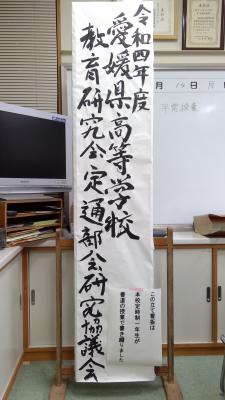 令和四年度
愛媛県高等学校
教育研究会定通部会研究協議会
この立て看板は
本校定時制一年生が
書道の授業で書き綴りました
平常授業